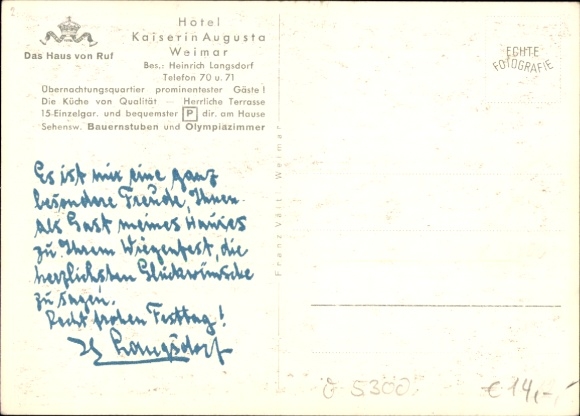 Hotel
Kaiserin Augusta
Weimar
Das Haus von Ruf
Bes.: Heinrich Langsdorf
Telefon 70 u. 71
Übernachtungsquartier prominentester Gäste!
Die Küche von Qualität — Herrliche Terrasse
15 Einzelgar. und bequemster P dir. am Hause
Sehensw. Bauernstuben und Olympiazimmer
Es ist mir eine ganz
besondere Freude, Ihnen
als Gast meines Hauses
zu Ihrem Wiegenfest, die
herzlichsten Glückwünsche
zu sagen.
Recht frohen Festtag!
Langsdorf
Weimar
ECHTE
FOTOGRAFIE
5300
€ 14,-